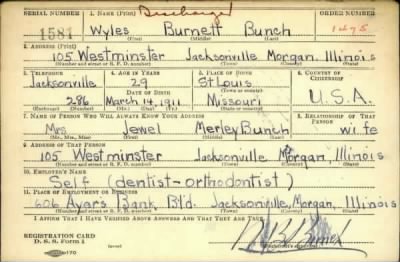 SERIAL NUMBER 1. NAME (Print) Discharged ORDER NUMBER
1581 Wyles Burnett Bunch 1275
(First) (Middle) (Last)
2. ADDRESS (Print)
105 Westminster Jacksonville Morgan, Illinois
(Number and street or R. F. D. number) (Town) (County) (State)
3. TELEPHONE 4. AGE IN YEARS 5. PLACE OF BIRTH 6. COUNTRY OF CITIZENSHIP
Jacksonville 29 St Louis
(Exchange) DATE OF BIRTH (Town or county)
286 March 14, 1911 Missouri U.S.A.
(Number) (Mo.) (Day) (Yr.) (State or country)
7. NAME OF PERSON WHO WILL ALWAYS KNOW YOUR ADDRESS 8. RELATIONSHIP OF THAT PERSON
Mrs. Jewel Merley Bunch wife
(Mr., Mrs., Miss) (First) (Middle) (Last)
9. ADDRESS OF THAT PERSON
105 Westminster Jacksonville Morgan, Illinois
(Number and street or R. F. D. number) (Town) (County) (State)
10. EMPLOYER'S NAME
Self (dentist-orthodontist)
11. PLACE OF EMPLOYMENT OR BUSINESS
606 Ayars Bank Bld. Jacksonville, Morgan, Illinois
(Number and street or R. F. D. number) (Town) (County) (State)
I AFFIRM THAT I HAVE VERIFIED ABOVE ANSWERS AND THAT THEY ARE TRUE.
REGISTRATION CARD
D. S. S. Form 1 W B Bunch
(Registrant's signature)